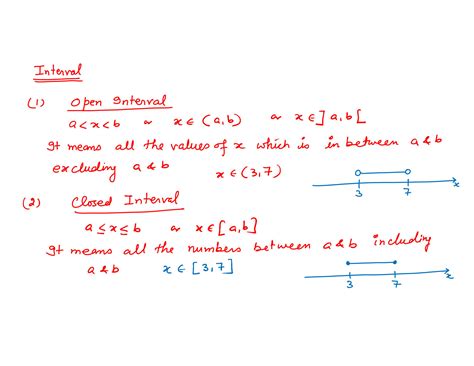 Interval
(1) Open Interval
a < x < b or x ∈ (a, b) or x ∈ ] a, b [
It means all the values of x which is in between a & b
excluding a & b x ∈ (3, 7)
3 7 x
(2) Closed Interval
a ≤ x ≤ b or x ∈ [a, b]
It means all the numbers between a & b including
a & b x ∈ [3, 7]
3 7 x